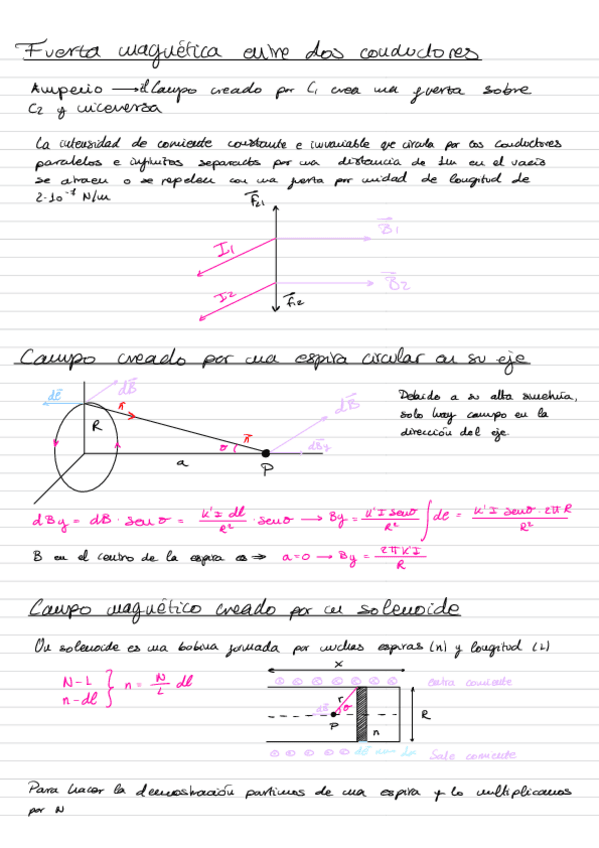 Fuerza magnética entre dos conductores
Amperio → El campo creado por C₁ crea una fuerza sobre
C₂ y viceversa
La intensidad de corriente constante e invariable que circula por los conductores
paralelos e infinitos separados por una distancia de 1m en el vacío
se atraen o se repelen con una fuerza por unidad de longitud de
2·10⁻⁷ N/m
F₂₁
I₁
B₁
I₂
B₂
F₁₂
Campo creado por una espira circular en su eje
dB
R
a
P
dB
dBy
Debido a su alta simetría,
solo hay campo en la
dirección del eje.
dBy = dB · senσ = K'I dl / R² · senσ → By = K'I senσ / R² ∫ dl = K'I senσ · 2πR / R²
B en el centro de la espira es ⇒ a=0 → By = 2πK'I / R
Campo magnético creado por un solenoide
Un solenoide es una bobina formada por muchas espiras (n) y longitud (L)
N-L
n-dl
} n = N/L dl
x
entra corriente
r
σ
dB
P
n
R
Sale corriente
Para hacer la demostración partimos de una espira y lo multiplicamos
por N